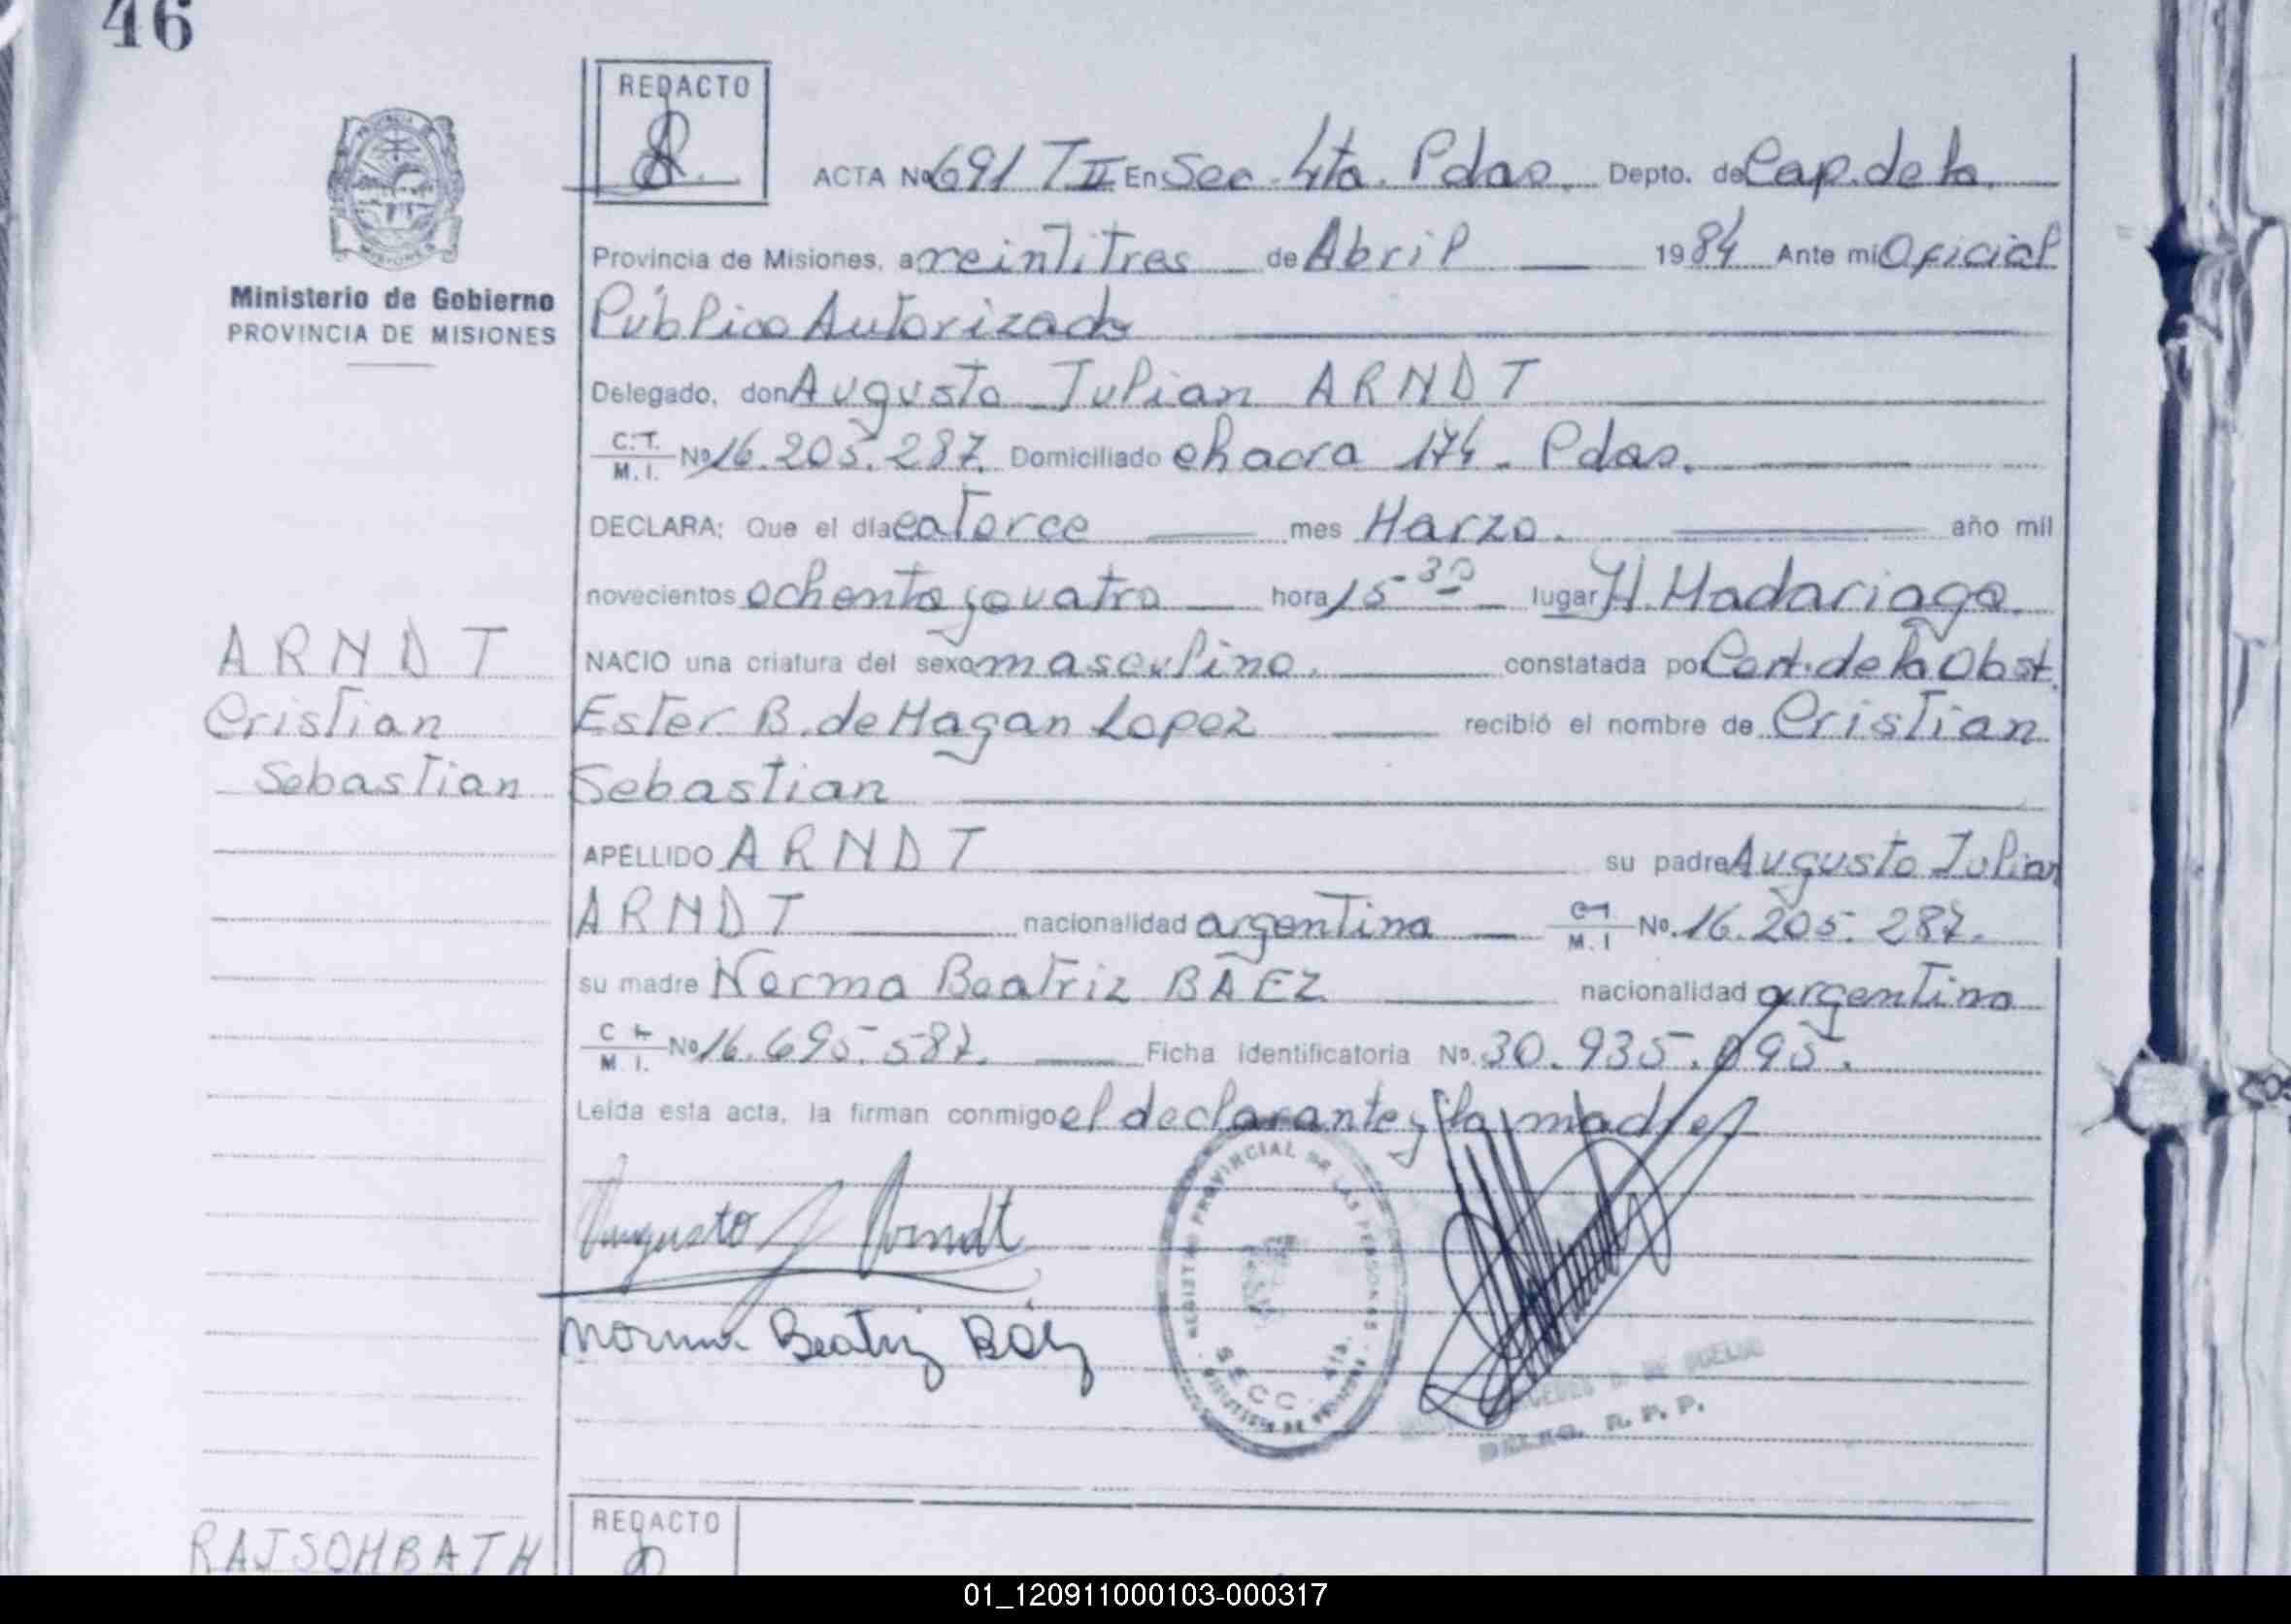 46
REDACTO
ACTA Nº 691 T II En Sec. 4ta. Pdas. Depto. de Cap. de la
Provincia de Misiones, a veintitres de Abril 1984 Ante mi Oficial
Ministerio de Gobierno
PROVINCIA DE MISIONES
Público Autorizado
Delegado, don Augusto Julian ARNDT
C.T. M.I. Nº 16.205.287. Domiciliado chacra 174. Pdas.
DECLARA: Que el día catorce mes Marzo. año mil
novecientos ochenta y cuatro hora 15-30 lugar H. Madariaga.
ARNDT
NACIO una criatura del sexo masculino. constatada por Cert. de la Obst.
Cristian
Ester B. de Magan Lopez recibió el nombre de Cristian
Sebastian
Sebastian
APELLIDO ARNDT su padre Augusto Julian
ARNDT nacionalidad argentina M.I Nº. 16.205.287.
su madre Norma Beatriz BÁEZ nacionalidad argentina
M.I. Nº 16.695.587. Ficha identificatoria Nº. 30.935.095.
Leída esta acta, la firman conmigo el declarante y la madre
REGISTRO PROVINCIAL DE LAS PERSONAS
SECC. 4ta.
Augusto J Arndt
Norma Beatriz Báez
DELEG. R. P. P.
RAJSOMBATH
REDACTO
01_120911000103-000317